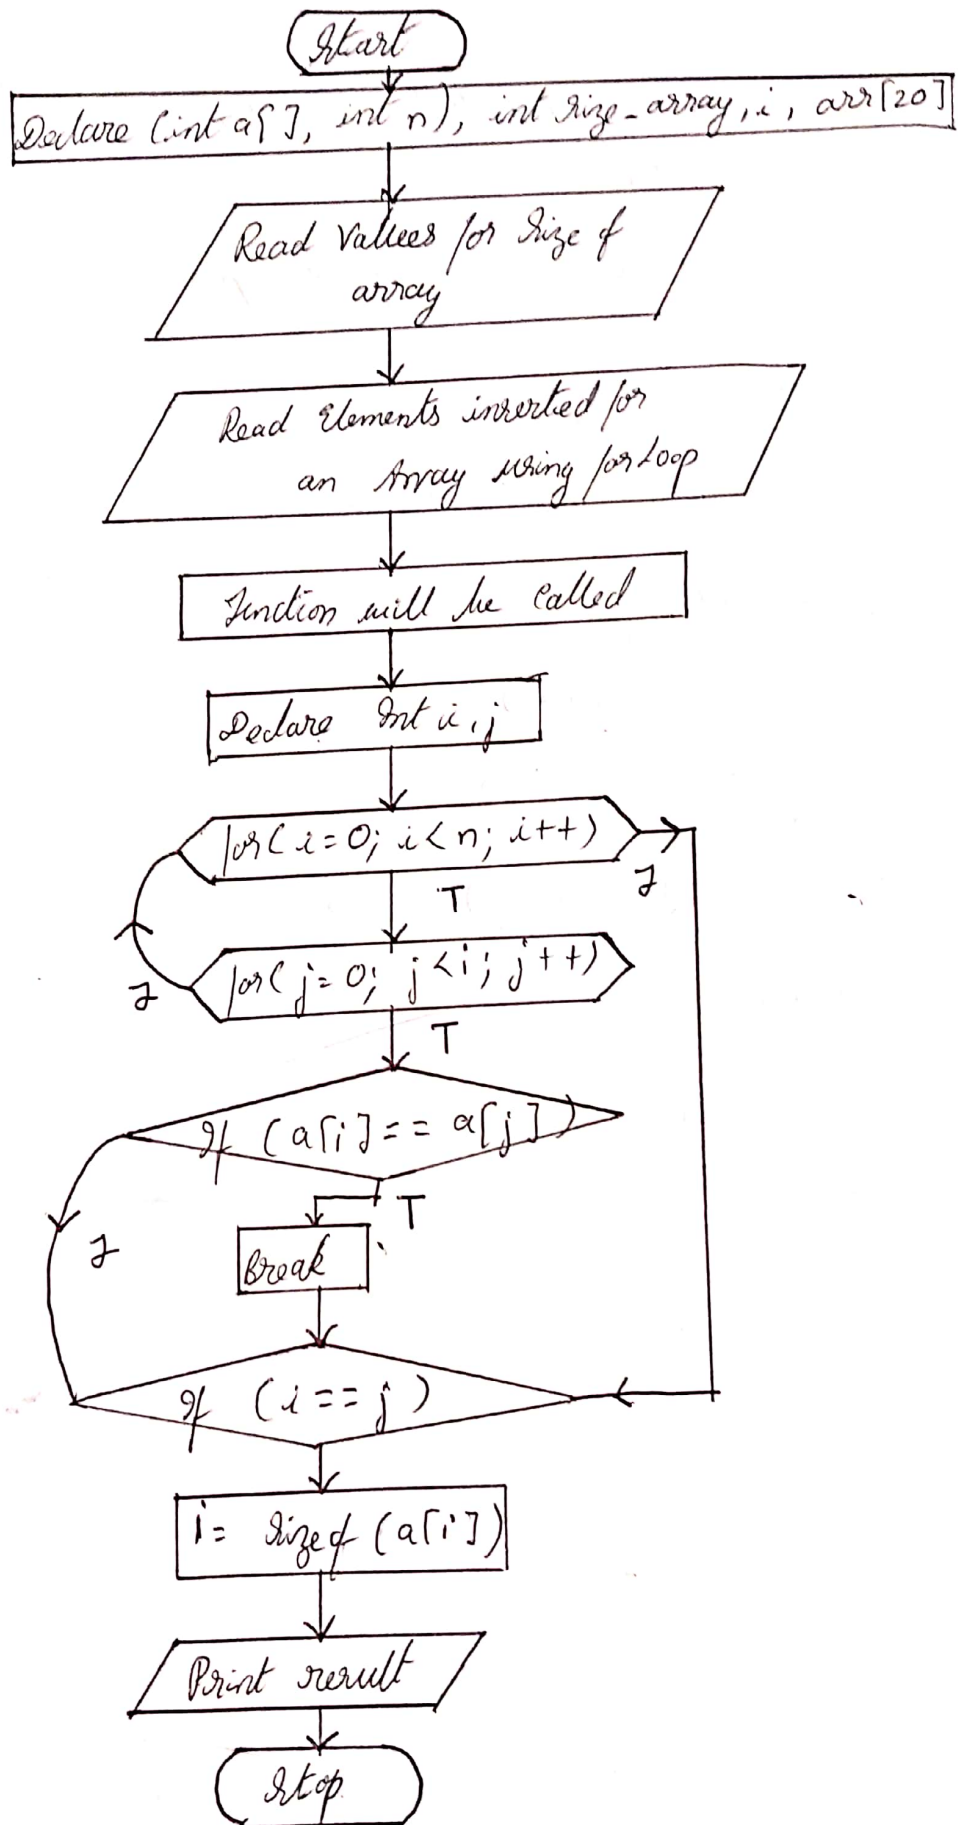 Start
Declare (int a[], int n), int size_array, i, arr[20]
Read Values for Size of
array
Read Elements inserted for
an Array using for Loop
Function will be Called
Declare Int i, j
for( i=0; i<n; i++)
F
T
for( j=0; j<i; j++)
F
T
If (a[i]== a[j])
T
F
Break
If (i==j)
i= Sizeof (a[i])
Print result
Stop